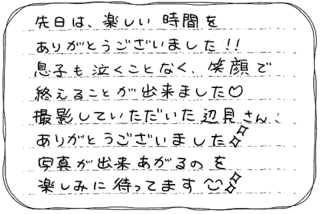 先日は、楽しい時間を
ありがとうございました!!
息子も泣くことなく、笑顔で
終えることが出来ました♡
撮影していただいた辺見さん、
ありがとうございました
写真が出来あがるのを
楽しみに待ってます